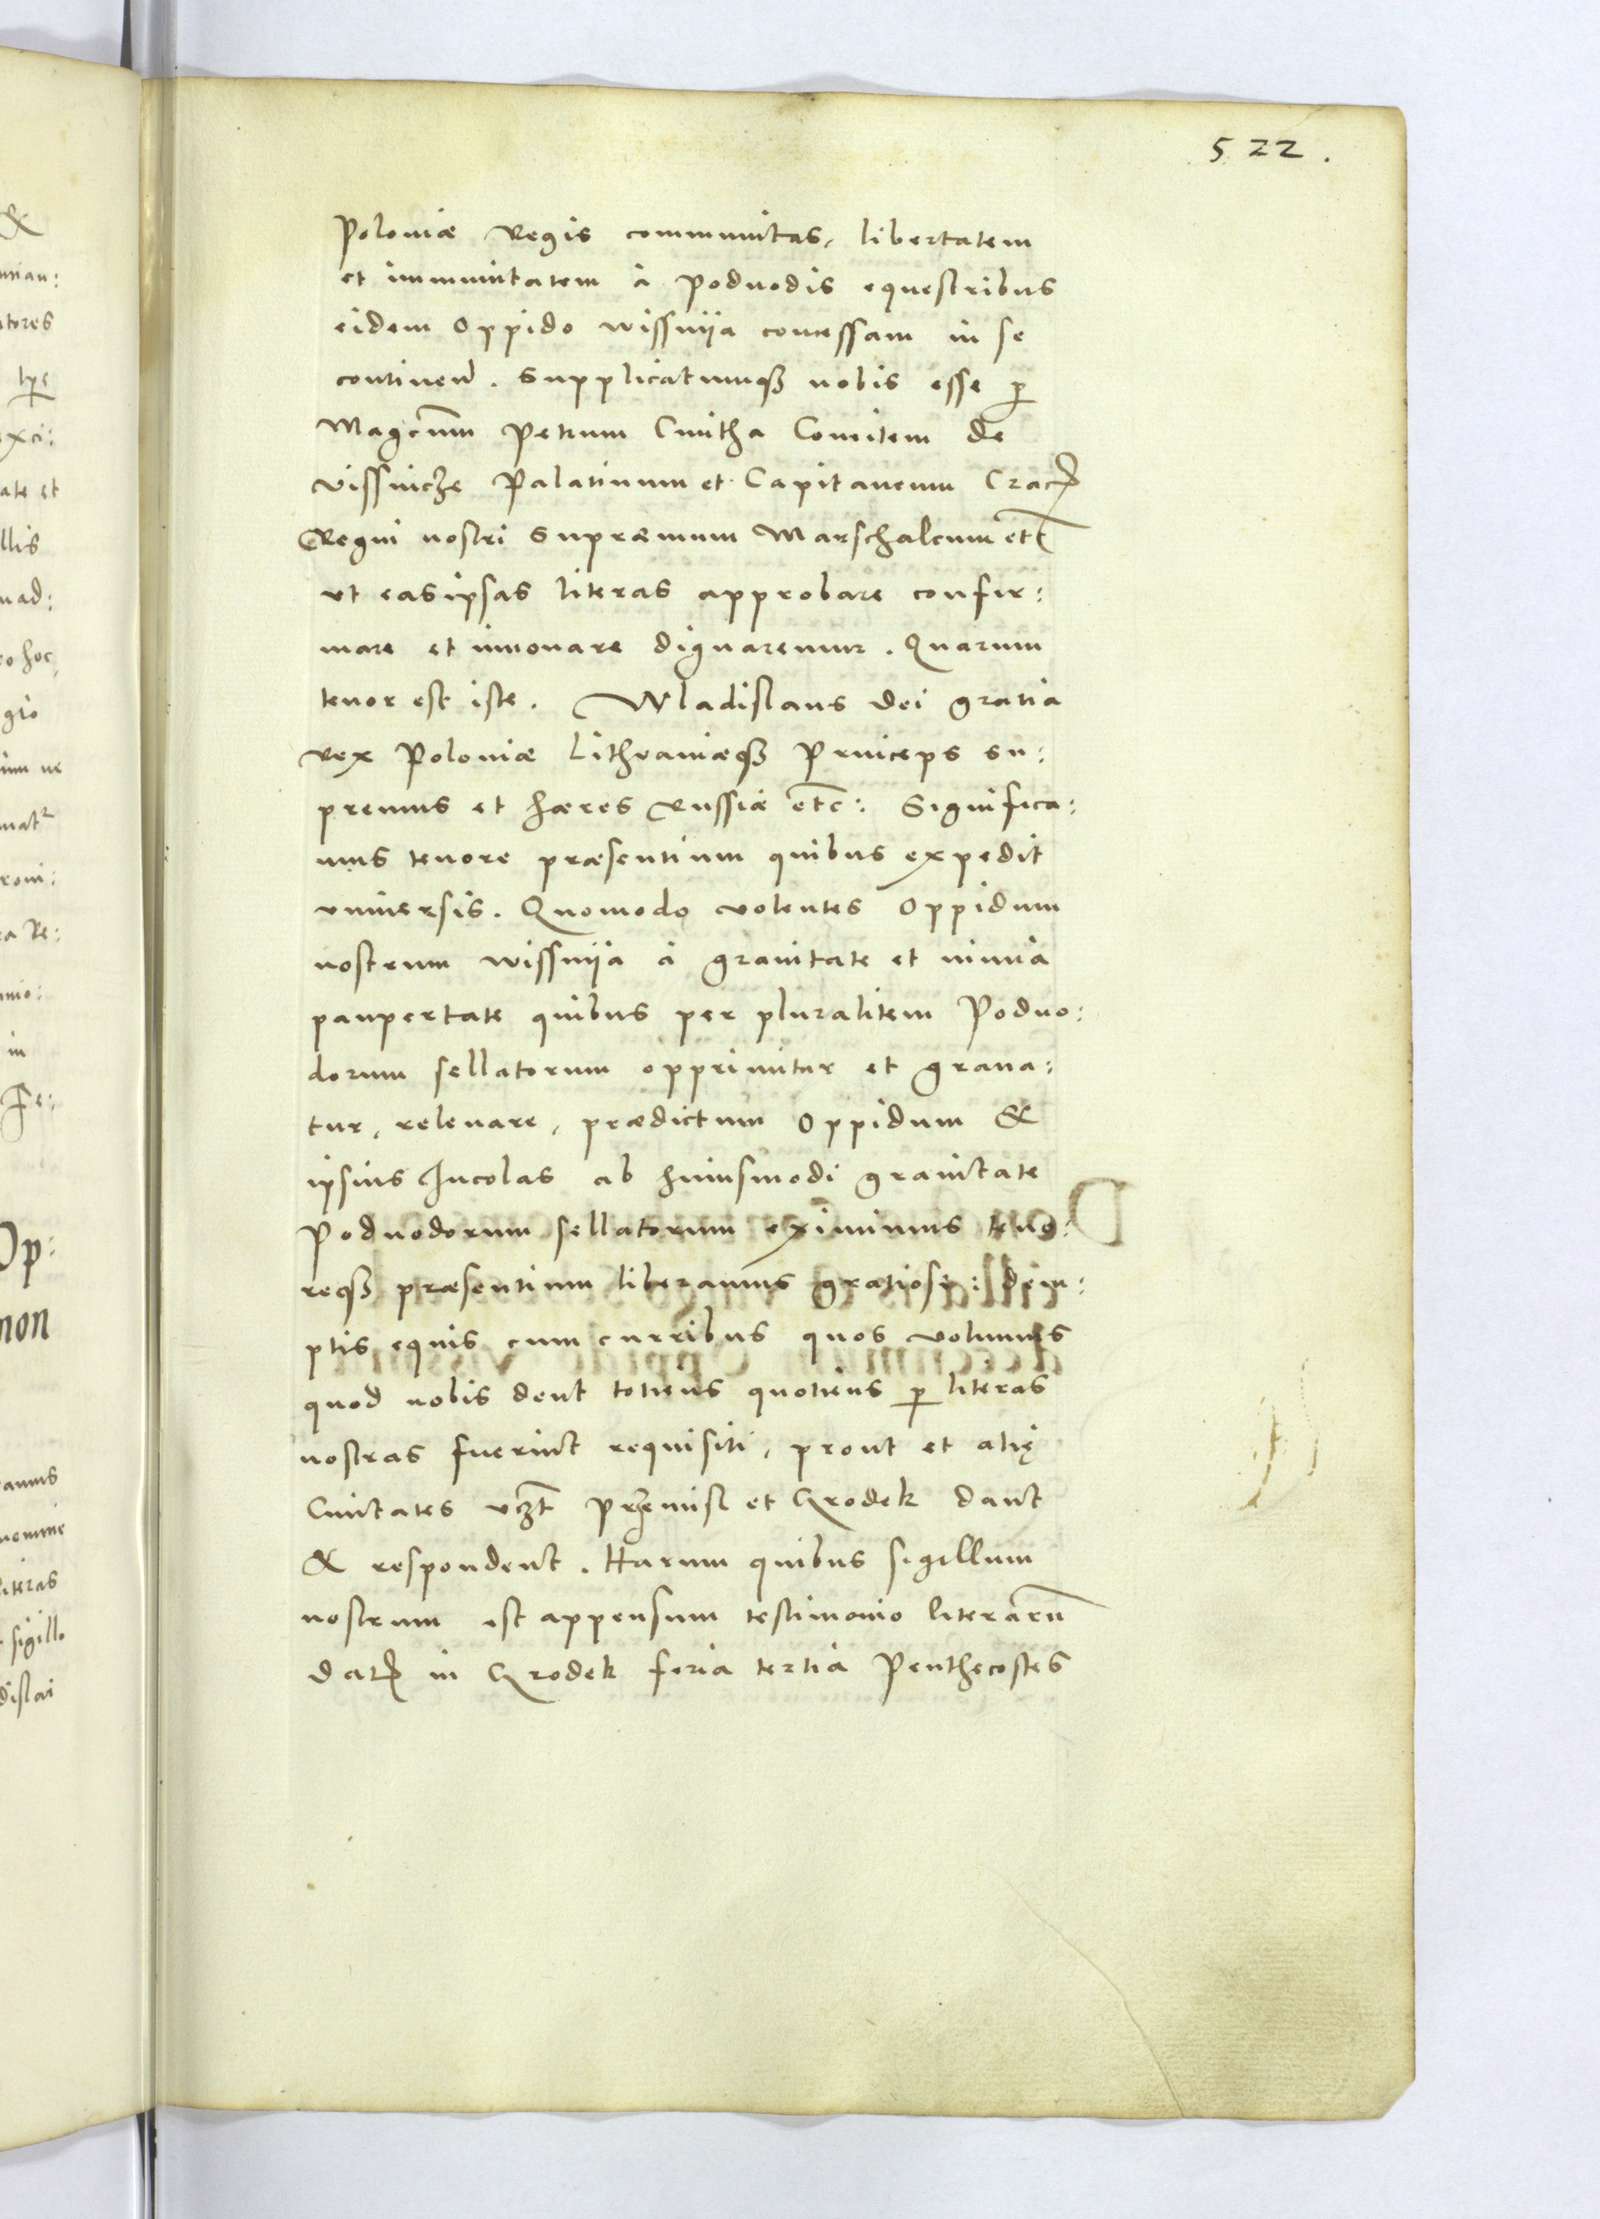 522.
Poloniæ Regis communitas, libertatem
et immunitatem à podvodis equestribus
eidem Oppido wissniia concessam in se
continen̄. Supplicatumq₃ nobis esse p̱
Magcu̅m Petrum Cmitha Comitem de
vissnicze Palatinum et Capitaneum Crac̃
Regni nostri Supræmum Marschalcum etc̄
ut eas ipsas literas approbare confir:
mare et innovare dignaremur. Quarum
tenor est iste. Wladislaus dei gratia
rex Poloniæ Lithvaniæq₃ Princeps su:
premus et hæres Russiæ etc̄: Significa:
mus tenore præsentium quibus expedit
vniversis. Quomodo volentes Oppidum
nostrum wissniia à gravitate et nimia
paupertate quibus per pluralitem Podvo:
dorum sellatorum opprimitur et grava:
tur, relevare, prædictum Oppidum &
ipsius Incolas ab huiusmodi gravitate
Podvodorum sellatorum eximimus teno:
req₃ præsentium liberamus gratiose: dem:
ptis equis cum curribus quos volumus
quod nobis dent totiens quotiens p̱ literas
nostras fuerint requisiti, prout et alię
Civitates vzt̄ Przemisl et Grodek dant
& respondent. Harum quibus sigillum
nostrum est appensum testimonio literarū
dat̃ in Grodek feria tertia Penthecostes